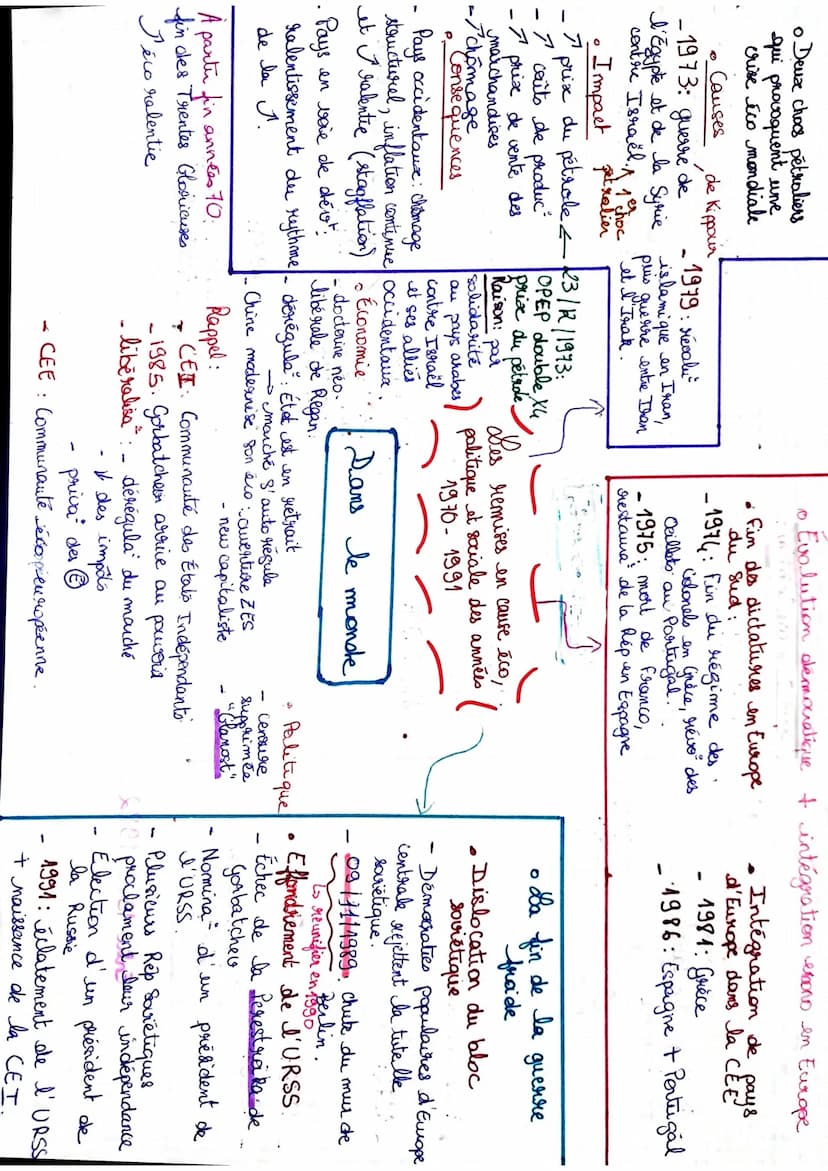 Les remises en cause éco,
politique et sociale des années
1970 - 1991
Dans le monde
o Deux chocs pétroliers
qui provoquent une
crise éco mondiale
• Causes
/ de Kippour
- 1973 : guerre de
l'Égypte et de la Syrie
contre Israël.
1er choc
pétrolier
- 1979 : révolu°
islamique en Iran,
puis guerre entre Iran
et l'Irak.
• Impact
- ↗ prix du pétrole ←
- ↗ coûts de produc°
- ↗ prix de vente des
marchandises
- ↗ chômage
23/12/1973 :
OPEP double X4
prix du pétrole
Raison : par
solidarité
au pays arabes
contre Israël
et ses alliés
occidentaux.
o Conséquences
- Pays occidentaux : chômage
structurel, inflation continue
et ↗ ralentie (stagflation)
- Pays en voie de dév° :
ralentissement du rythme
de la ↗.
À partir fin années 70 :
fin des Trentes Glorieuses
↗ éco ralentie
o Économie
- doctrine néo.
libérale de Regan.
- dérégula° : État est en retrait
→ marché s'auto régule
- Chine modernise son éco : ouverture ZES
- new capitaliste
• Politique
- censure
supprimée
- "Glanost"
Rappel :
• CEI : Communauté des États Indépendants
- 1985. Gorbatchev arrive au pouvoir
- libéralisa° : - dérégula° du marché
- ↓ des impôts
- priva° des Ⓔ
- CEE : Communauté éco européenne.
o Évolution démocratique + intégration écono en Europe
• Fin des dictatures en Europe
du Sud :
- 1974 : Fin du régime des
colonels en Grèce, révo° des
Œillets au Portugal.
- 1975 : mort de Franco,
restaura° de la Rép en Espagne
• Intégration de pays
d'Europe dans la CEE
- 1981 : Grèce
- 1986 : Espagne + Portugal
o La fin de la guerre
froide
• Dislocation du bloc
soviétique
- Démocraties populaires d'Europe
centrale rejettent la tutelle
soviétique.
- 09/11/1989. Chute du mur de
Berlin.
↳ réunifier en 1990
• Effondrement de l'URSS.
- Échec de la Perestroïka de
Gorbatchev
- Nomina° d'un président de
l'URSS.
- Plusieurs Rép Soviétiques
proclament leur indépendance
- Élection d'un président de
la Russie
- 1991 : éclatement de l'URSS
+ naissance de la CEI.